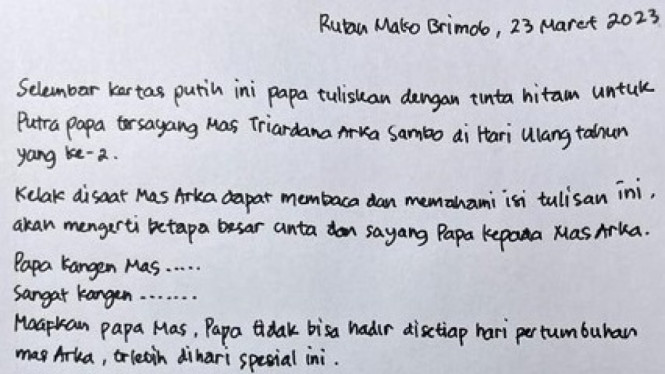 Rutan Mako Brimob, 23 Maret 2023
Selembar kertas putih ini papa tuliskan dengan tinta hitam untuk
Putra papa tersayang Mas Triardana Arka Sambo di Hari Ulang tahun
yang ke-2.
Kelak disaat Mas Arka dapat membaca dan memahami isi tulisan ini,
akan mengerti betapa besar cinta dan sayang Papa kepada Mas Arka.
Papa kangen Mas .....
Sangat kangen .......
Maapkan papa Mas, Papa tidak bisa hadir disetiap hari pertumbuhan
mas Arka, terlebih dihari spesial ini.